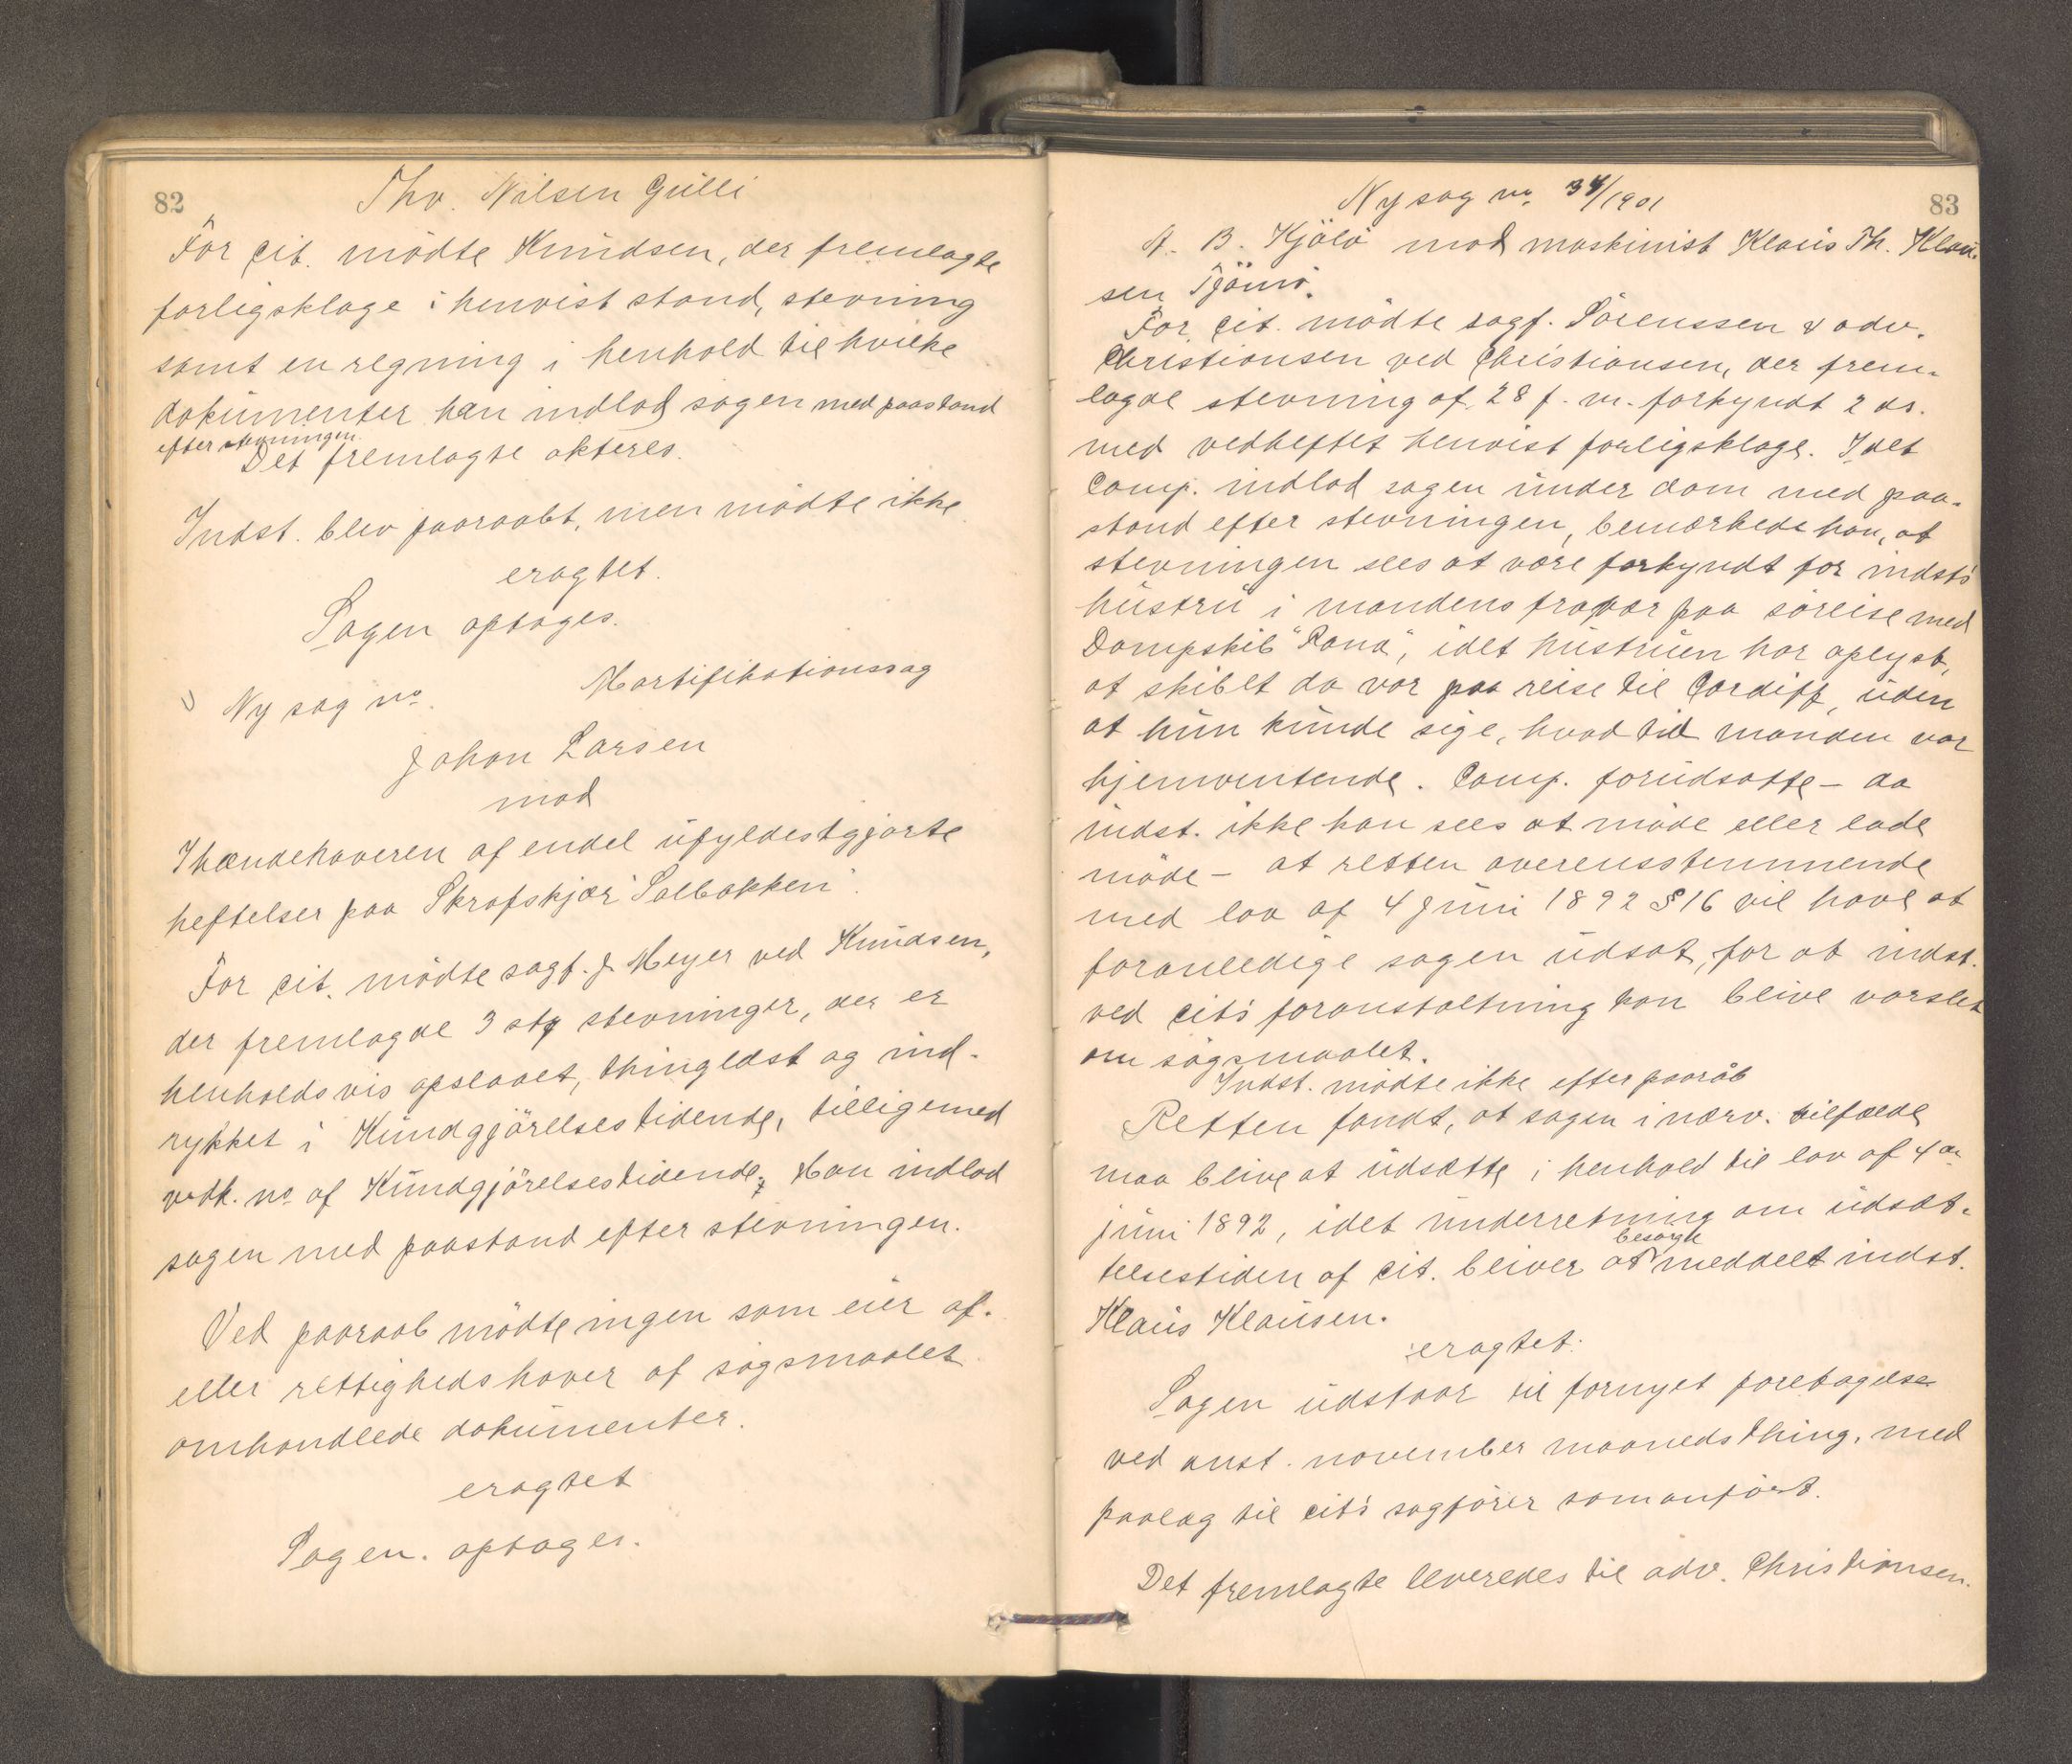 82
Thv. Nilsen Gulli
For cit. mödte Knudsen, der fremlagte
forligsklage i henvist stand, stevning
samt en regning i henhold til hvilke
dokumenter han indlod sagen med paastand
efter stevningen.
Det fremlagte akteres.
Indst. blev paaraabt, men mödte ikke
eragtet.
Sagen optages.
Ny sag no. Mortifikationssag
Johan Larsen
mod
Ihændehaveren af endel ufyldestgjorte
heftelser paa Skrafskjær "Solbakken".
For cit. mödte sagf. J. Meyer ved Knudsen,
der fremlagde 3 stg stevninger, der er
henholdsvis opslaaet, thinglæst og ind-
rykket i Kundgjörelsestidende, tilligemed
vedk. no af Kundgjörelsestidende; Han indlod
sagen med paastand efter stevningen.
Ved paaraab mödte ingen som eier af.
eller rettighedshaver af sögsmaalet
omhandlede dokumenter.
eragtet
Sagen. optages.
83
Ny sag no. 34/1901
A. B. Kjölö mod maskinist Klaus Th. Klau-
sen Tjömö.
For cit. mödte sagf. Sörenssen & adv.
Christiansen ved Christiansen, der frem-
lagde stevning af 28 f. m. forkyndt 2 ds.
med vedheftet henvist forligsklage. Idet
Comp. indlod sagen under dom med paa-
stand efter stevningen, bemærkede han, at
stevningen sees at være forkyndt for indsts
hustru i mandens fravær paa söreise med
Dampskib "Rana", idet hustruen har oplyst,
at skibet da var paa reise til Cardiff, uden
at hun kunde sige, hvad tid manden var
hjemventende. Comp. forudsatte – da
indst. ikke kan sees at möde eller lade
möde – at retten overensstemmende
med lov af 4 Juni 1892 § 16 vil have at
foranledige sagen udsat, for at indst.
ved cits foranstaltning kan blive varslet
om sögsmaalet.
Indst. mödte ikke efter paaråb
Retten fandt, at sagen i nærv. tilfælde
maa blive at udsætte i henhold til lov af 4de
juni 1892, idet underretning om udsæt-
telsestiden af cit. bliver at besørge meddelt indst.
Klaus Klausen.
eragtet:
Sagen udstaar til fornyet foretagelse
ved anst. november maanedsthing, med
paalæg til cits sagförer som anfört.
Det fremlagte leveredes til adv. Christiansen.